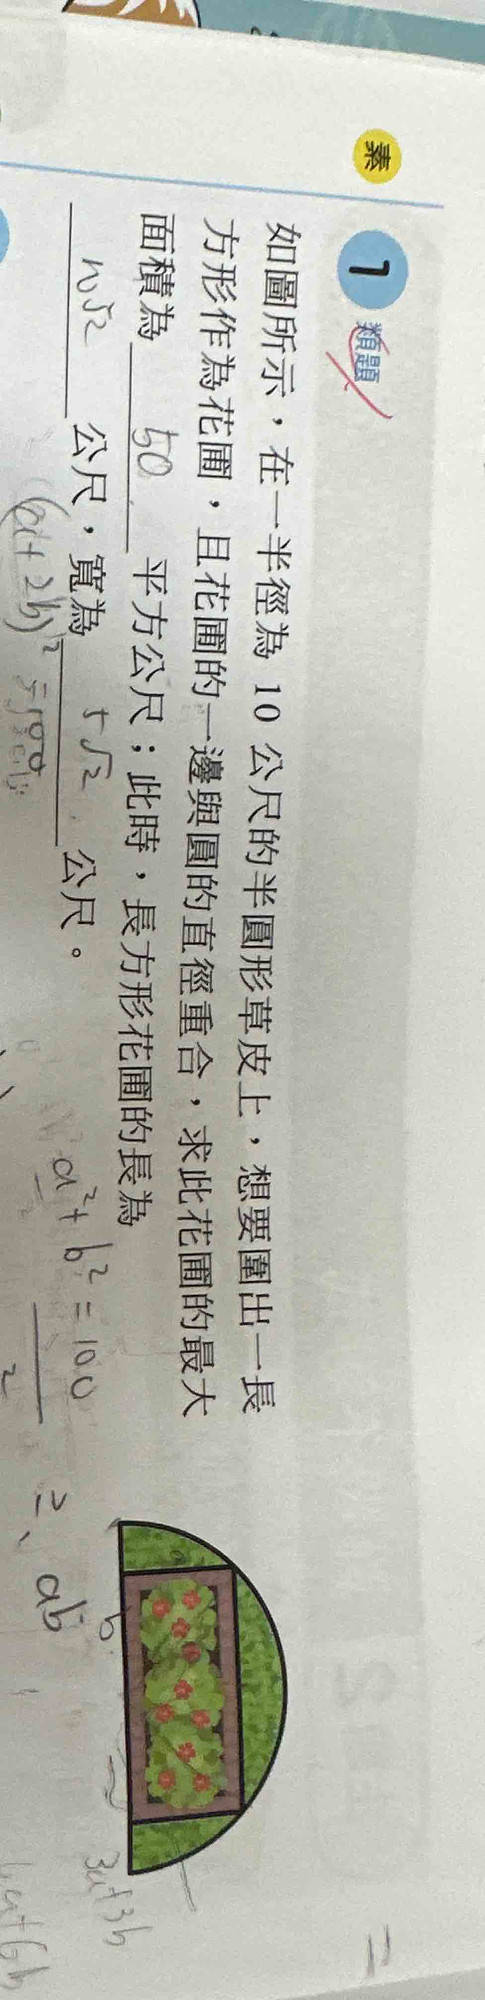 素
1 類題
如圖所示，在一半徑為 10 公尺的半圓形草皮上，想要圍出一長
方形作為花圃，且花圃的一邊與圓的直徑重合，求此花圃的最大
面積為 50 平方公尺；此時，長方形花圃的長為
10√2 公尺，寬為 5√2 公尺。
a²+b²=100
2
≥ ab
b
3a+3b